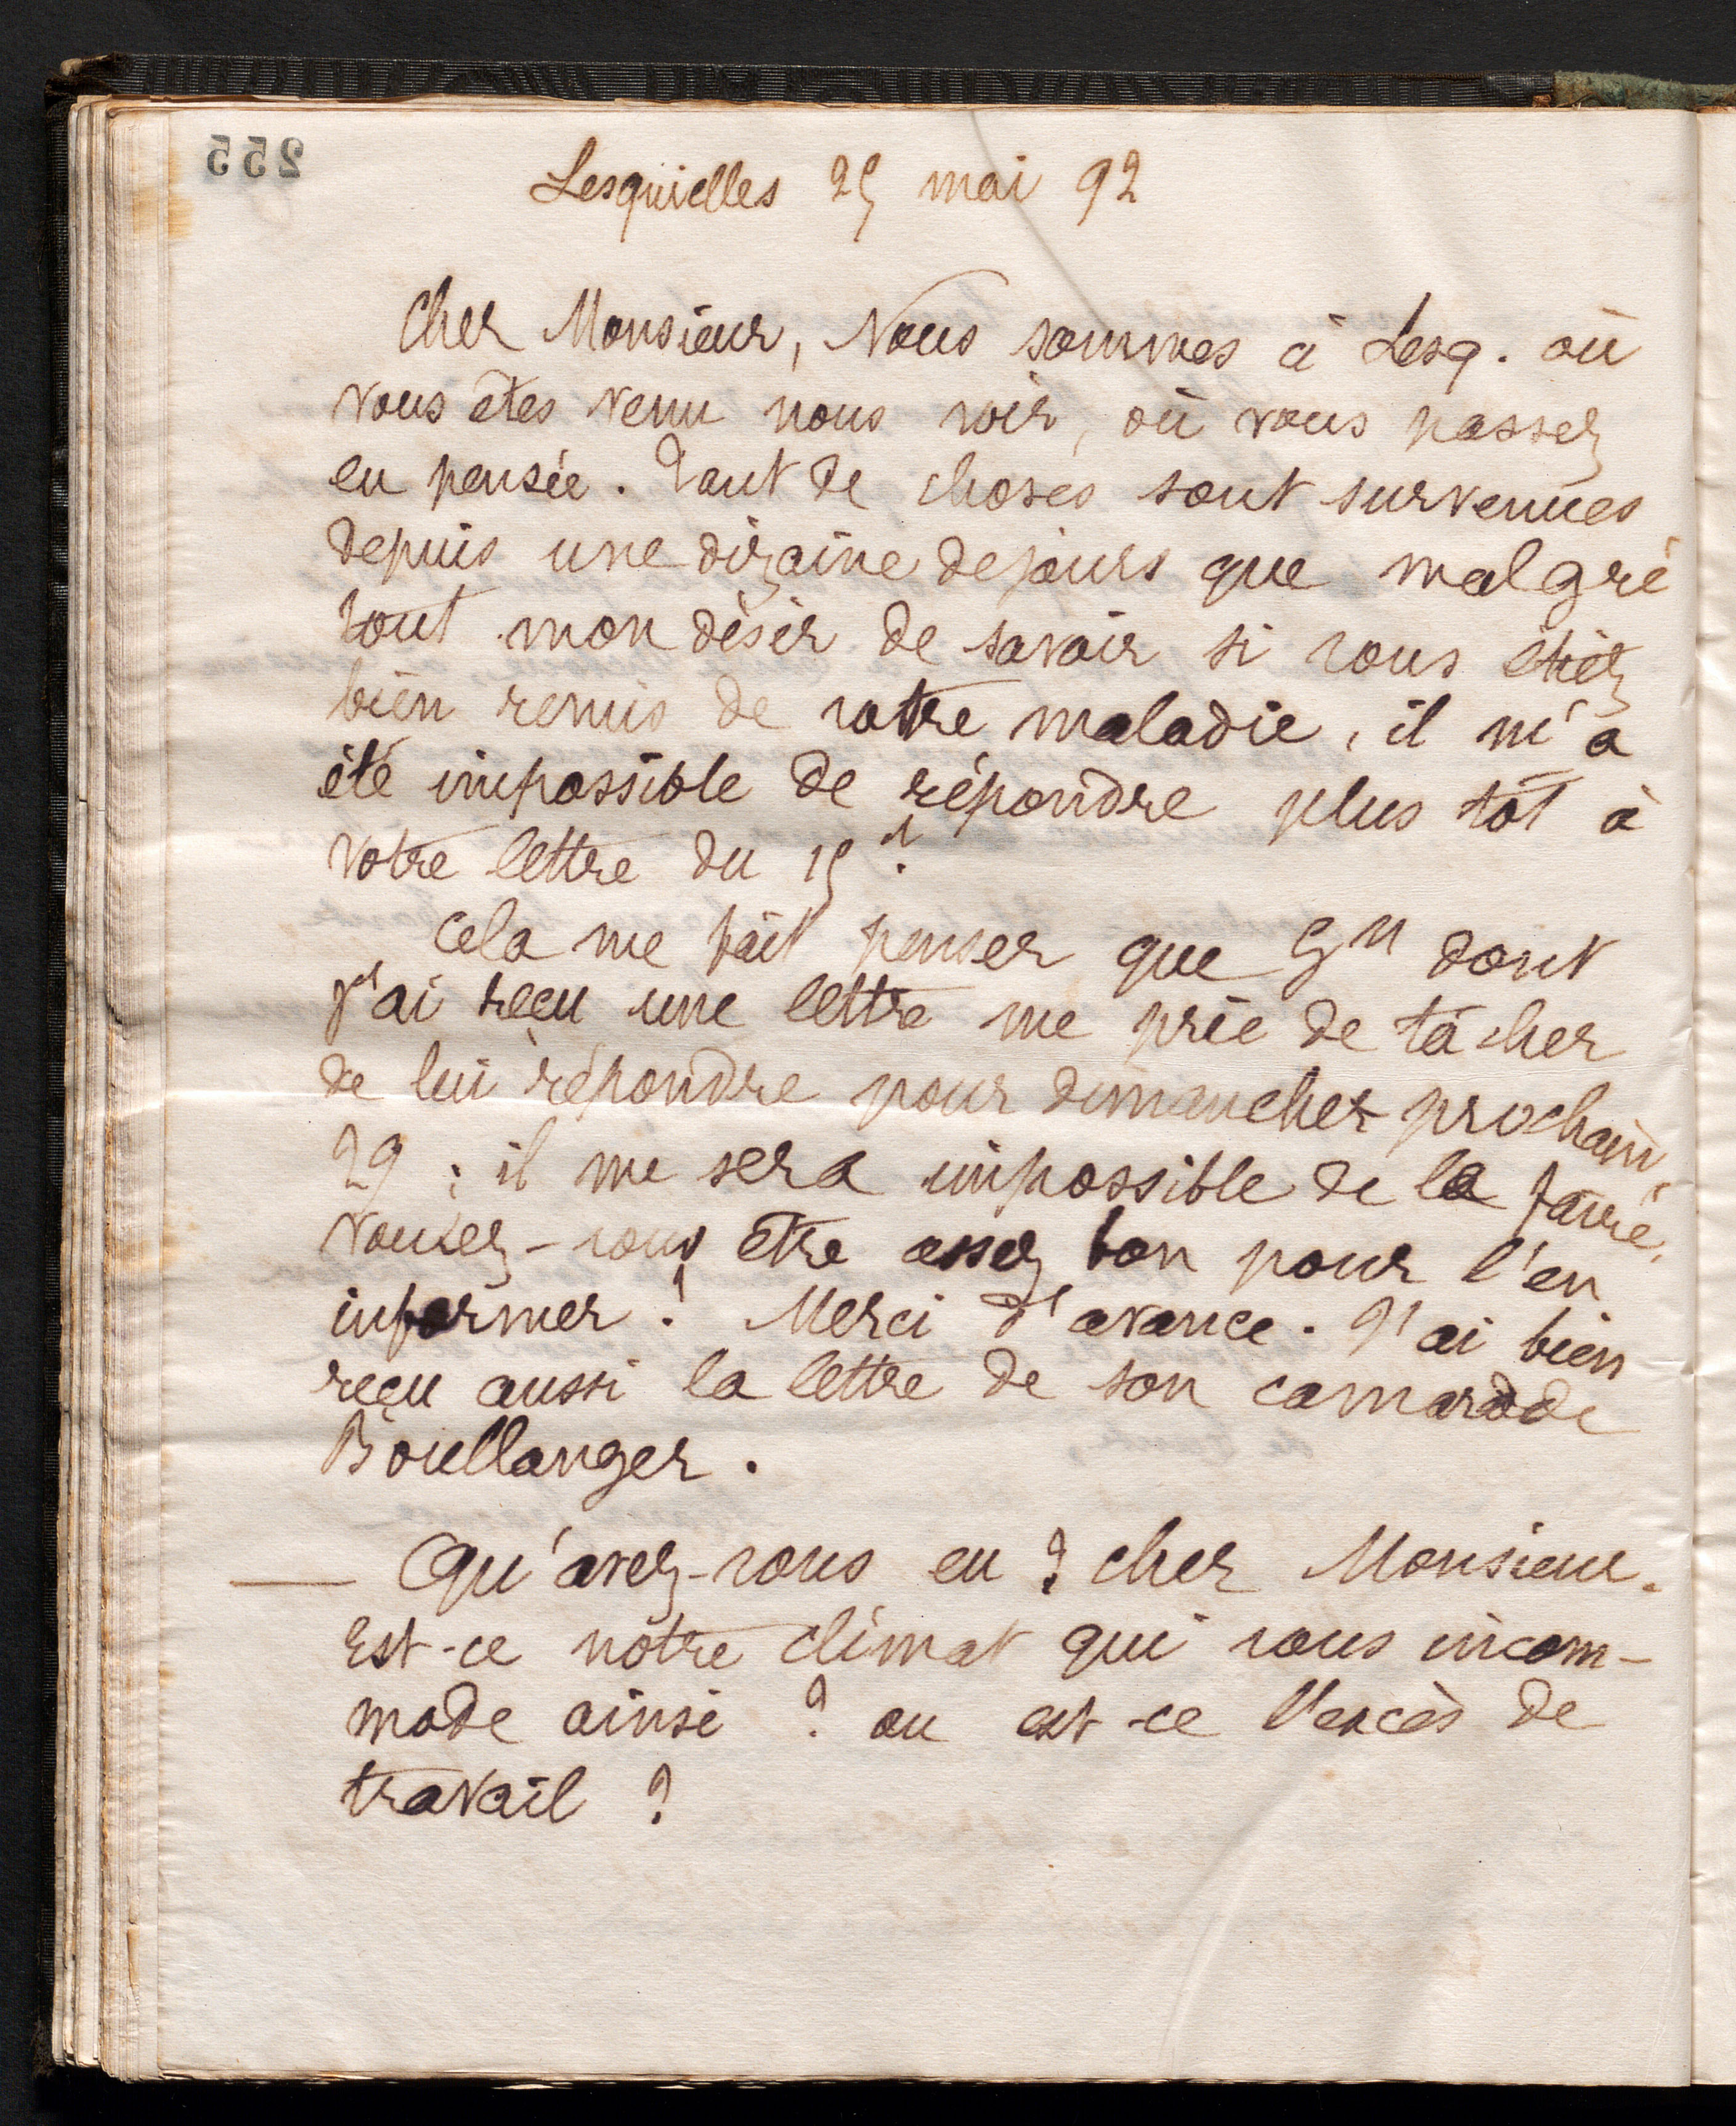 255
Lesquielles 25 mai 92
Cher Monsieur, Nous sommes à Lesq. où
vous êtes venu nous voir, où vous passez
en pensée. Tant de choses sont survenues
depuis une dizaine de jours que malgré
tout mon désir de savoir si vous étiez
bien remis de votre maladie, il m'a
été impossible de répondre plus tôt à
votre lettre du 15
Cela me fait penser que Gn dont
j'ai reçu une lettre me prie de tâcher
de lui répondre pour dimanche prochain
29 : il me sera impossible de le faire.
Voulez-vous être assez bon pour l'en
informer ? Merci d'avance. J'ai bien
reçu aussi la lettre de son camarade
Boullanger.
— Qu'avez-vous eu ? cher Monsieur.
Est-ce notre climat qui vous incom-
mode ainsi ? ou est-ce l'excès de
travail ?